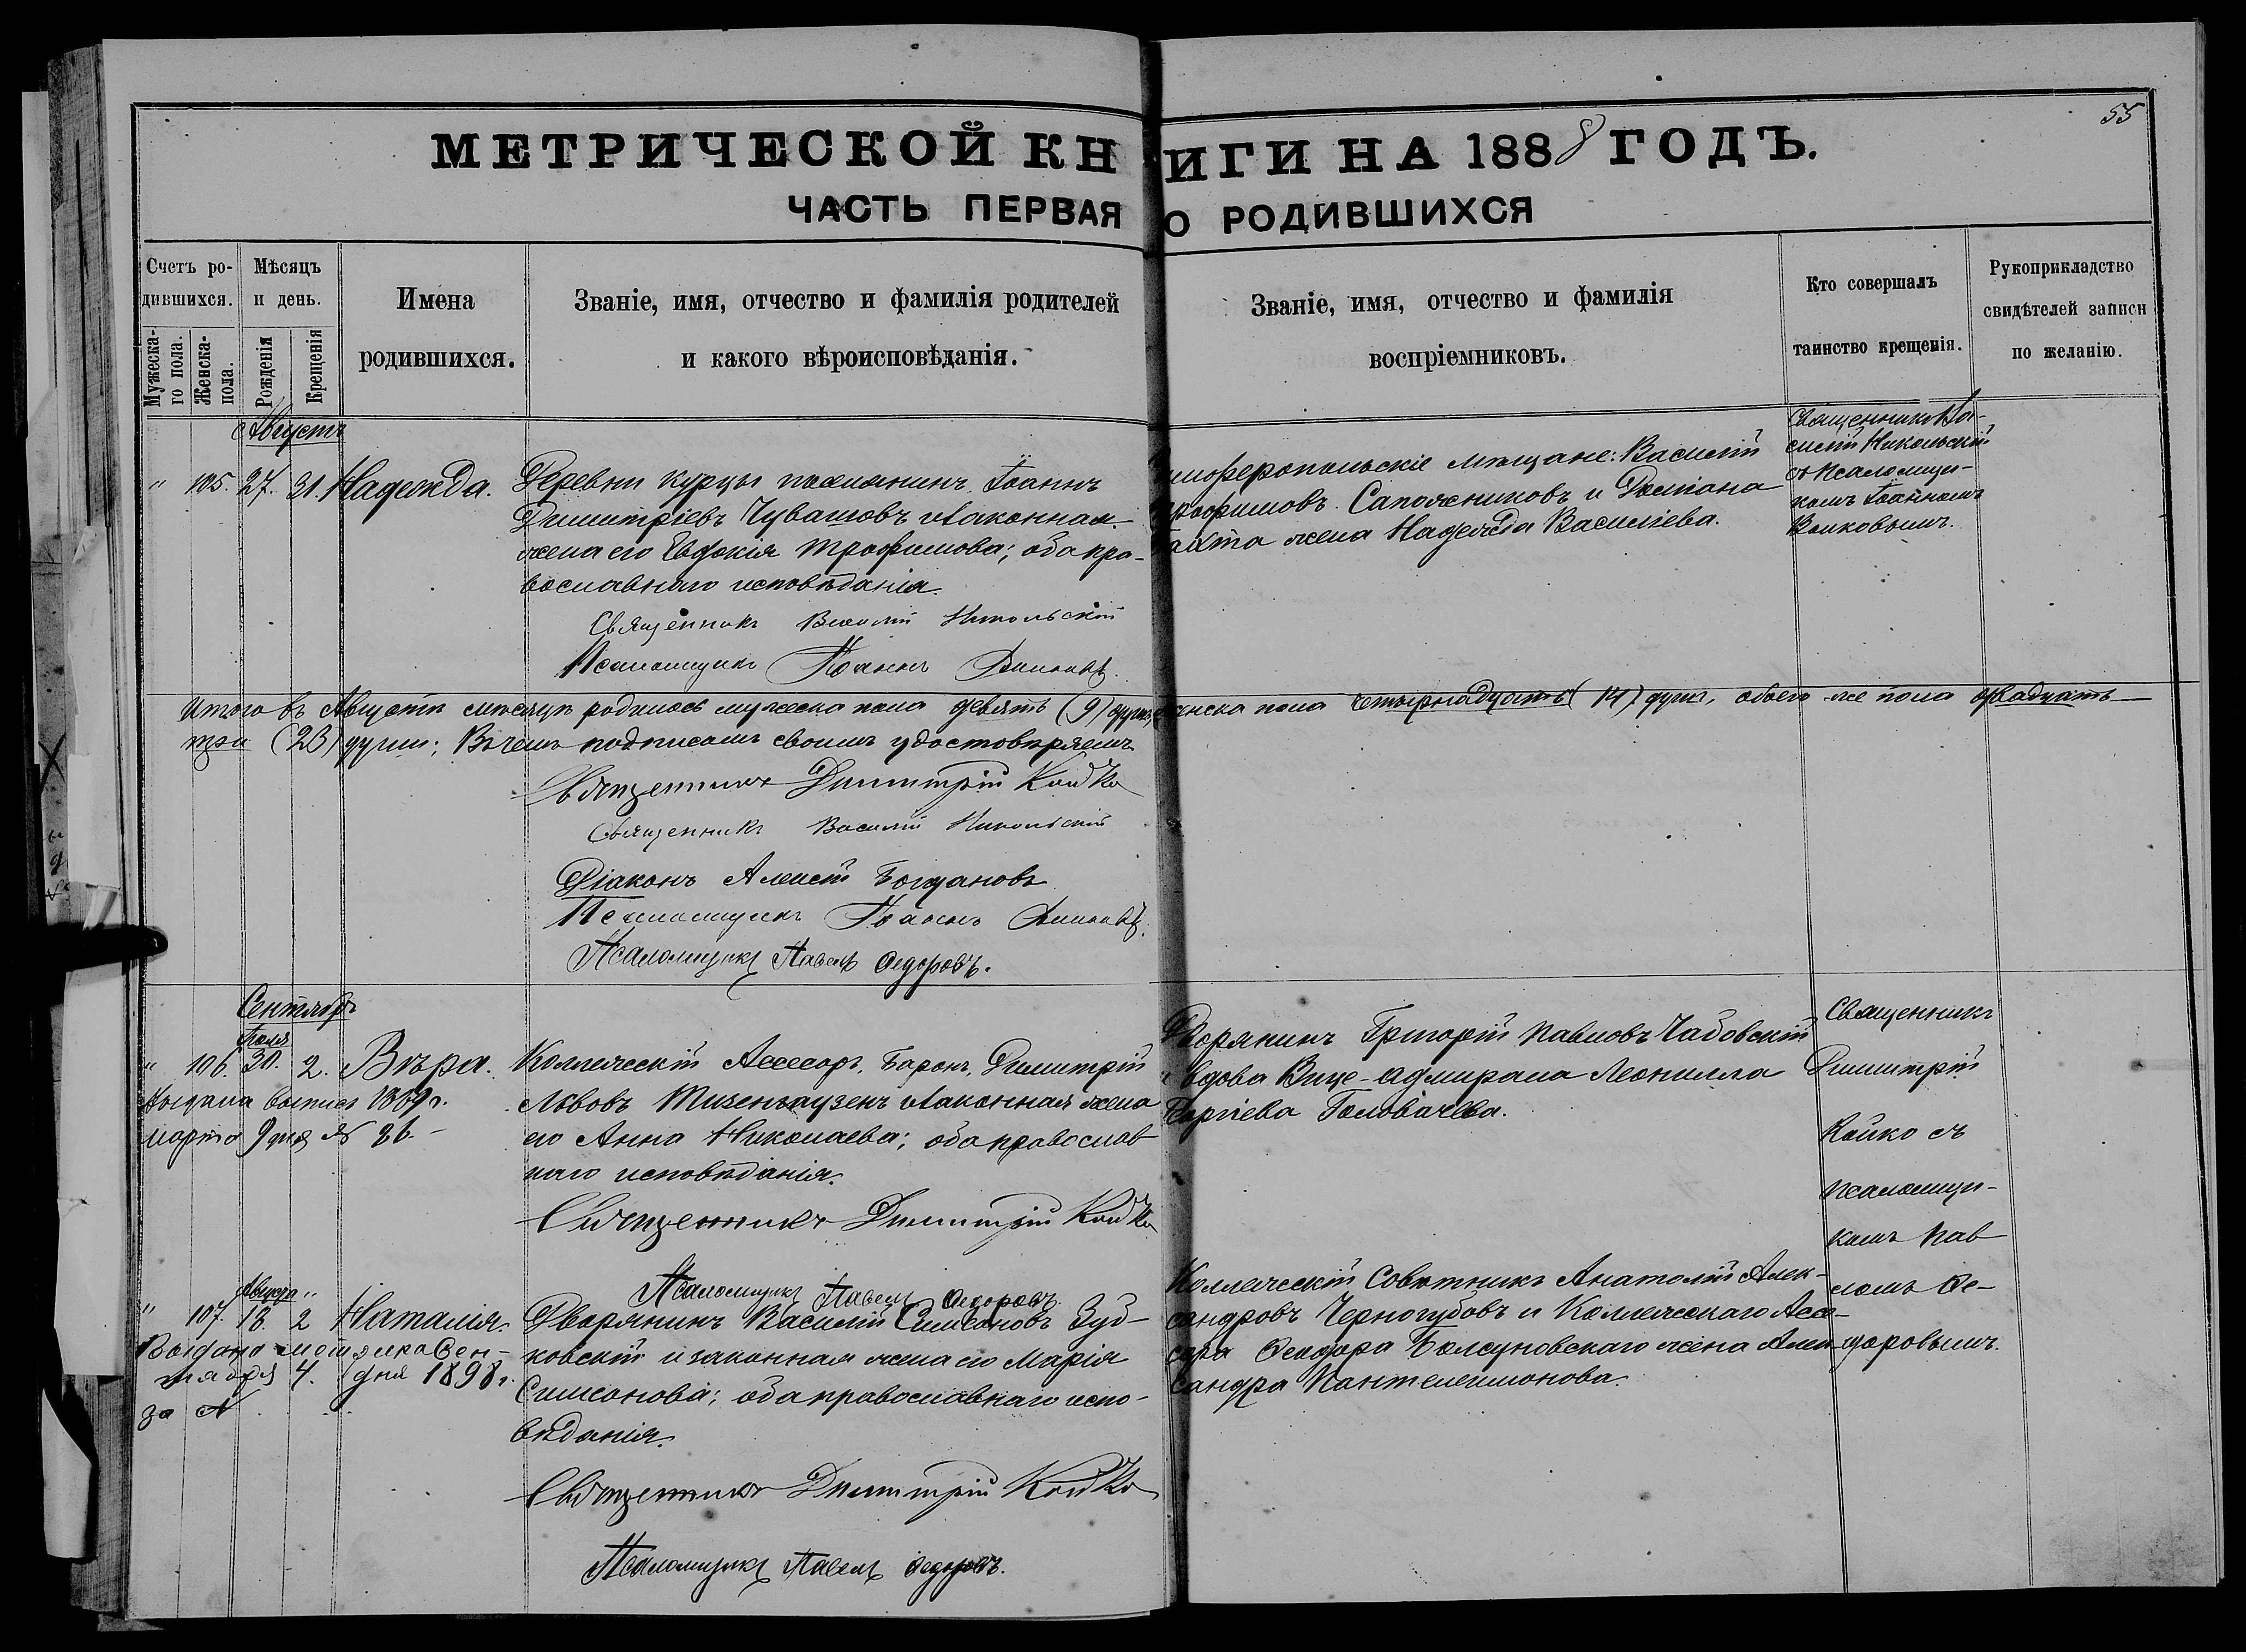 55
МЕТРИЧЕСКОЙ КНИГИ НА 1888 ГОДЪ.
ЧАСТЬ ПЕРВАЯ О РОДИВШИХСЯ
Счетъ ро-
дившихся.
Мужеска-
го пола.
Женска-
пола.
Мѣсяцъ
и день.
Рожденія
Крещенія
Имена
родившихся.
Званіе, имя, отчество и фамилія родителей
и какого вѣроисповѣданія.
Званіе, имя, отчество и фамилія
воспріемниковъ.
Кто совершалъ
таинство крещенія.
Рукоприкладство
свидѣтелей записи
по желанію.
Августъ
" 105. 27. 31. Надежда.
Деревни Курцы поселянинъ Іоаннъ
Димитріевъ Чувашовъ и законная
жена его Евдокія Трофимова; оба пра-
вославнаго исповѣданія.
Священникъ Василій Никольскій
Псаломщикъ Іоаннъ
имферопольскіе мѣщане: Василій
рофимовъ Сапожниковъ и Даміана
жена Надежда Василіева.
Священникъ Ва-
силій Никольскій
съ Псаломщи-
комъ Іоанномъ
Волковымъ.
Итого въ Августѣ мѣсяцѣ родилось мужеска пола девять (9) душъ, женска пола четырнадцать (14) душъ, обоего же пола двадцать
три (23) души; Въ чемъ подписомъ своимъ удостовѣряемъ
Священникъ Димитрій Койко
Священникъ Василій Никольскій
Діаконъ Алексій Богдановъ
Псаломщикъ Іоаннъ
Псаломщикъ Павелъ Ѳедоровъ.
Сентябрь
Іюля
" 106. 30. 2. Вѣра.
Выдана выпись 1889 г.
марта 9 дня № 26.
Коллежскій Ассесоръ, Баронъ, Димитрій
Львовъ Тизенгаузенъ и законная жена
его Анна Николаева; оба православ
наго исповѣданія.
Священникъ Димитрій Койко
Псаломщикъ Павелъ Ѳедоровъ.
Дворянинъ Григорій Павловъ Чабовскій
и вдова Вице-адмирала Леонилла
Георгіева Головачева.
Священникъ
Димитрій
Койко съ
псаломщи-
комъ Пав
ломъ Ѳе-
доровымъ.
Августа "
" 107. 18. 2 Наталія.
Выдана метрика Сен-
тября 4. дня 1898 г.
за №
Дворянинъ Василій Симеоновъ Зуб-
ковскій и законная жена его Марія
Симеонова; оба православнаго испо-
вѣданія.
Священникъ Димитрій Койко
Псаломщикъ Павелъ Ѳедоровъ.
Коллежскій Совѣтникъ Анатолій Алек-
сандровъ Черногубовъ и Коллежскаго Ассе-
сора Ѳеодора Болсуновскаго жена Алек-
сандра Пантелеимонова.